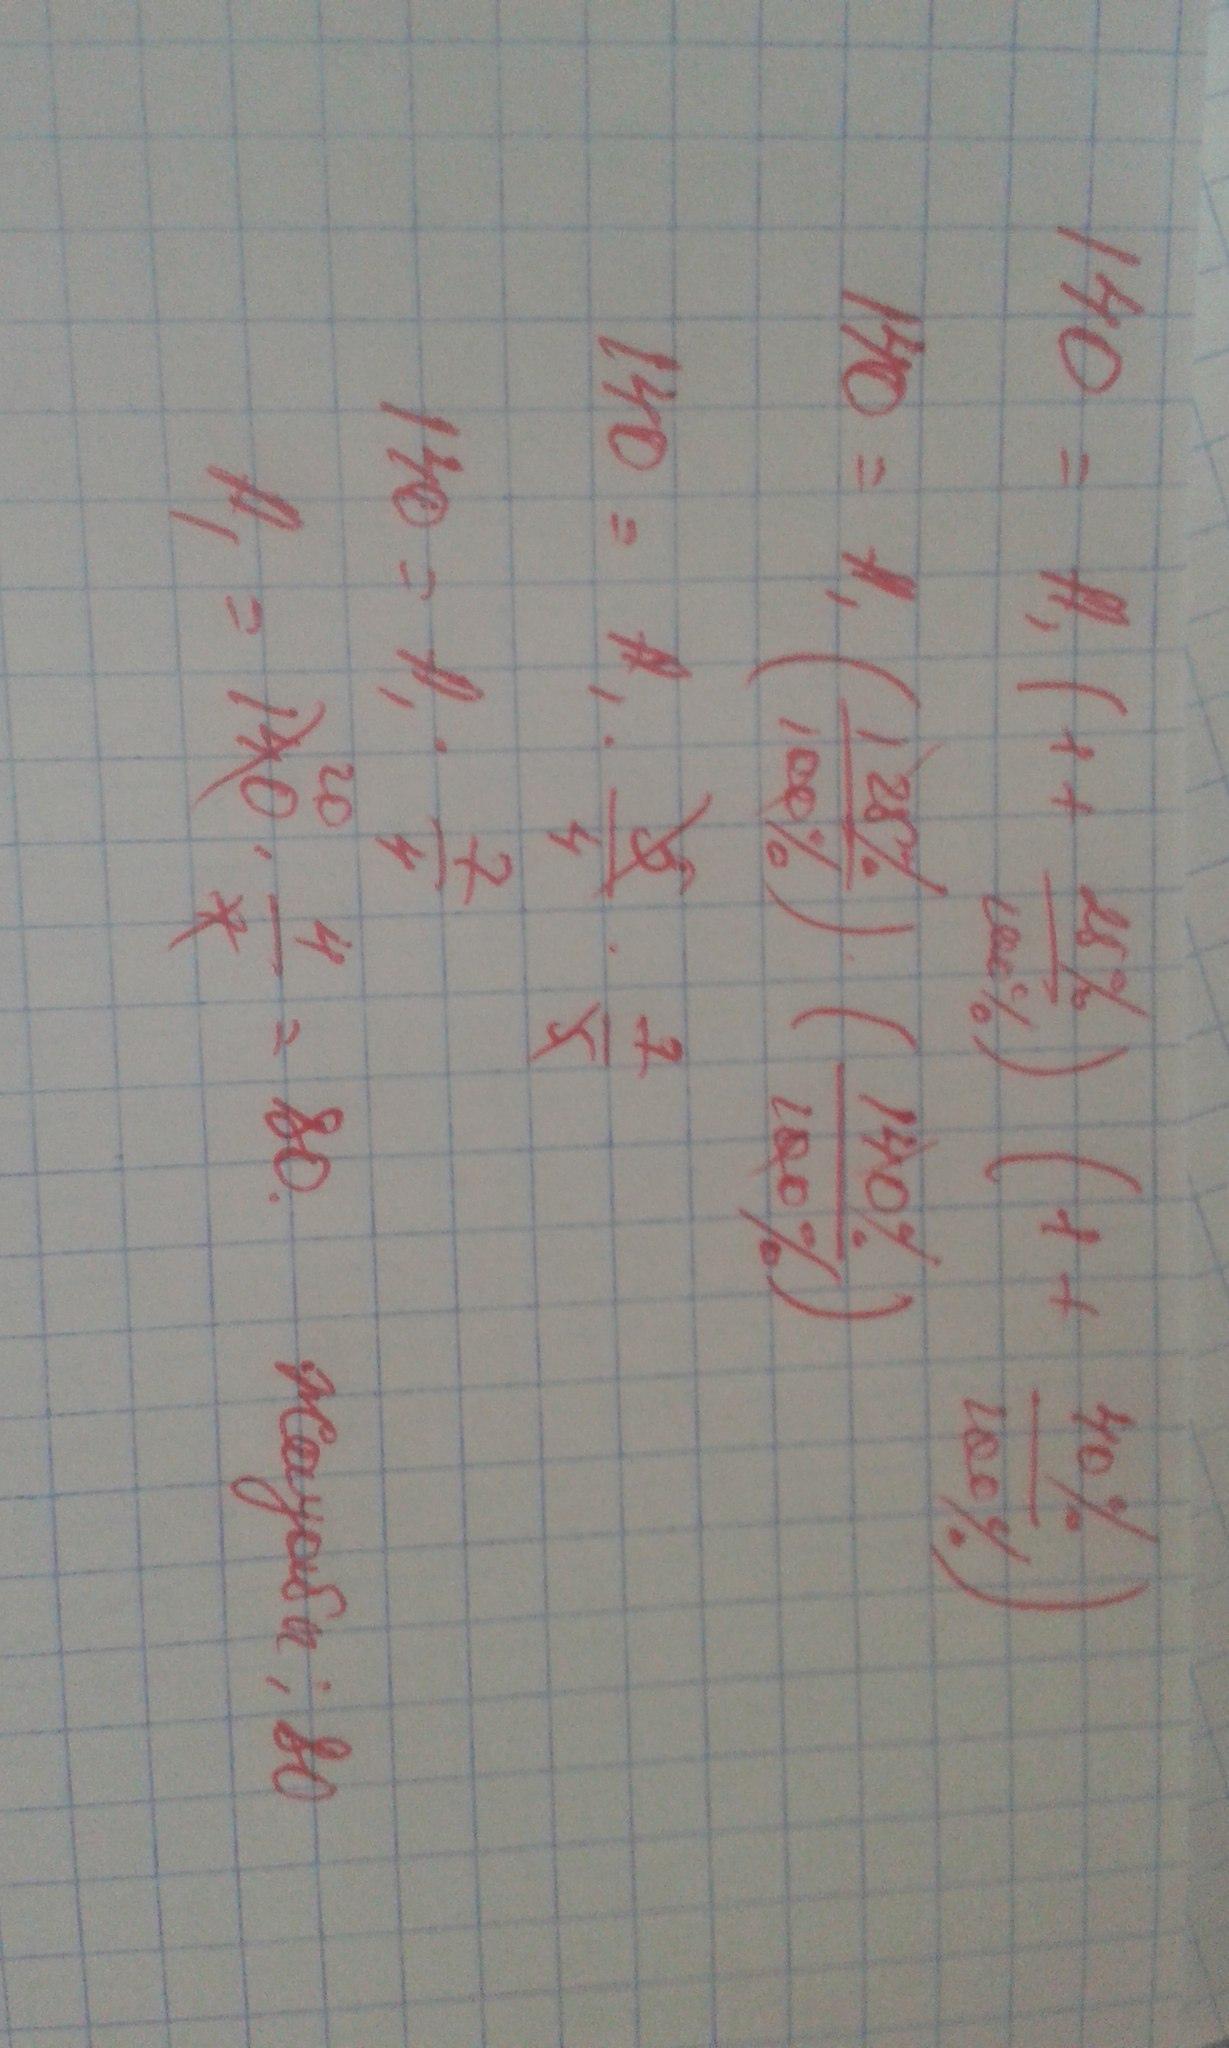 140 = A₁ (1 + 25%/100%) (1 + 40%/100%)
140 = A₁ (125%/100%) · (140%/100%)
140 = A₁ · 5/4 · 7/5
140 = A₁ · 7/4
A₁ = 140 20 · 4/7 = 80. Жауабы: 80